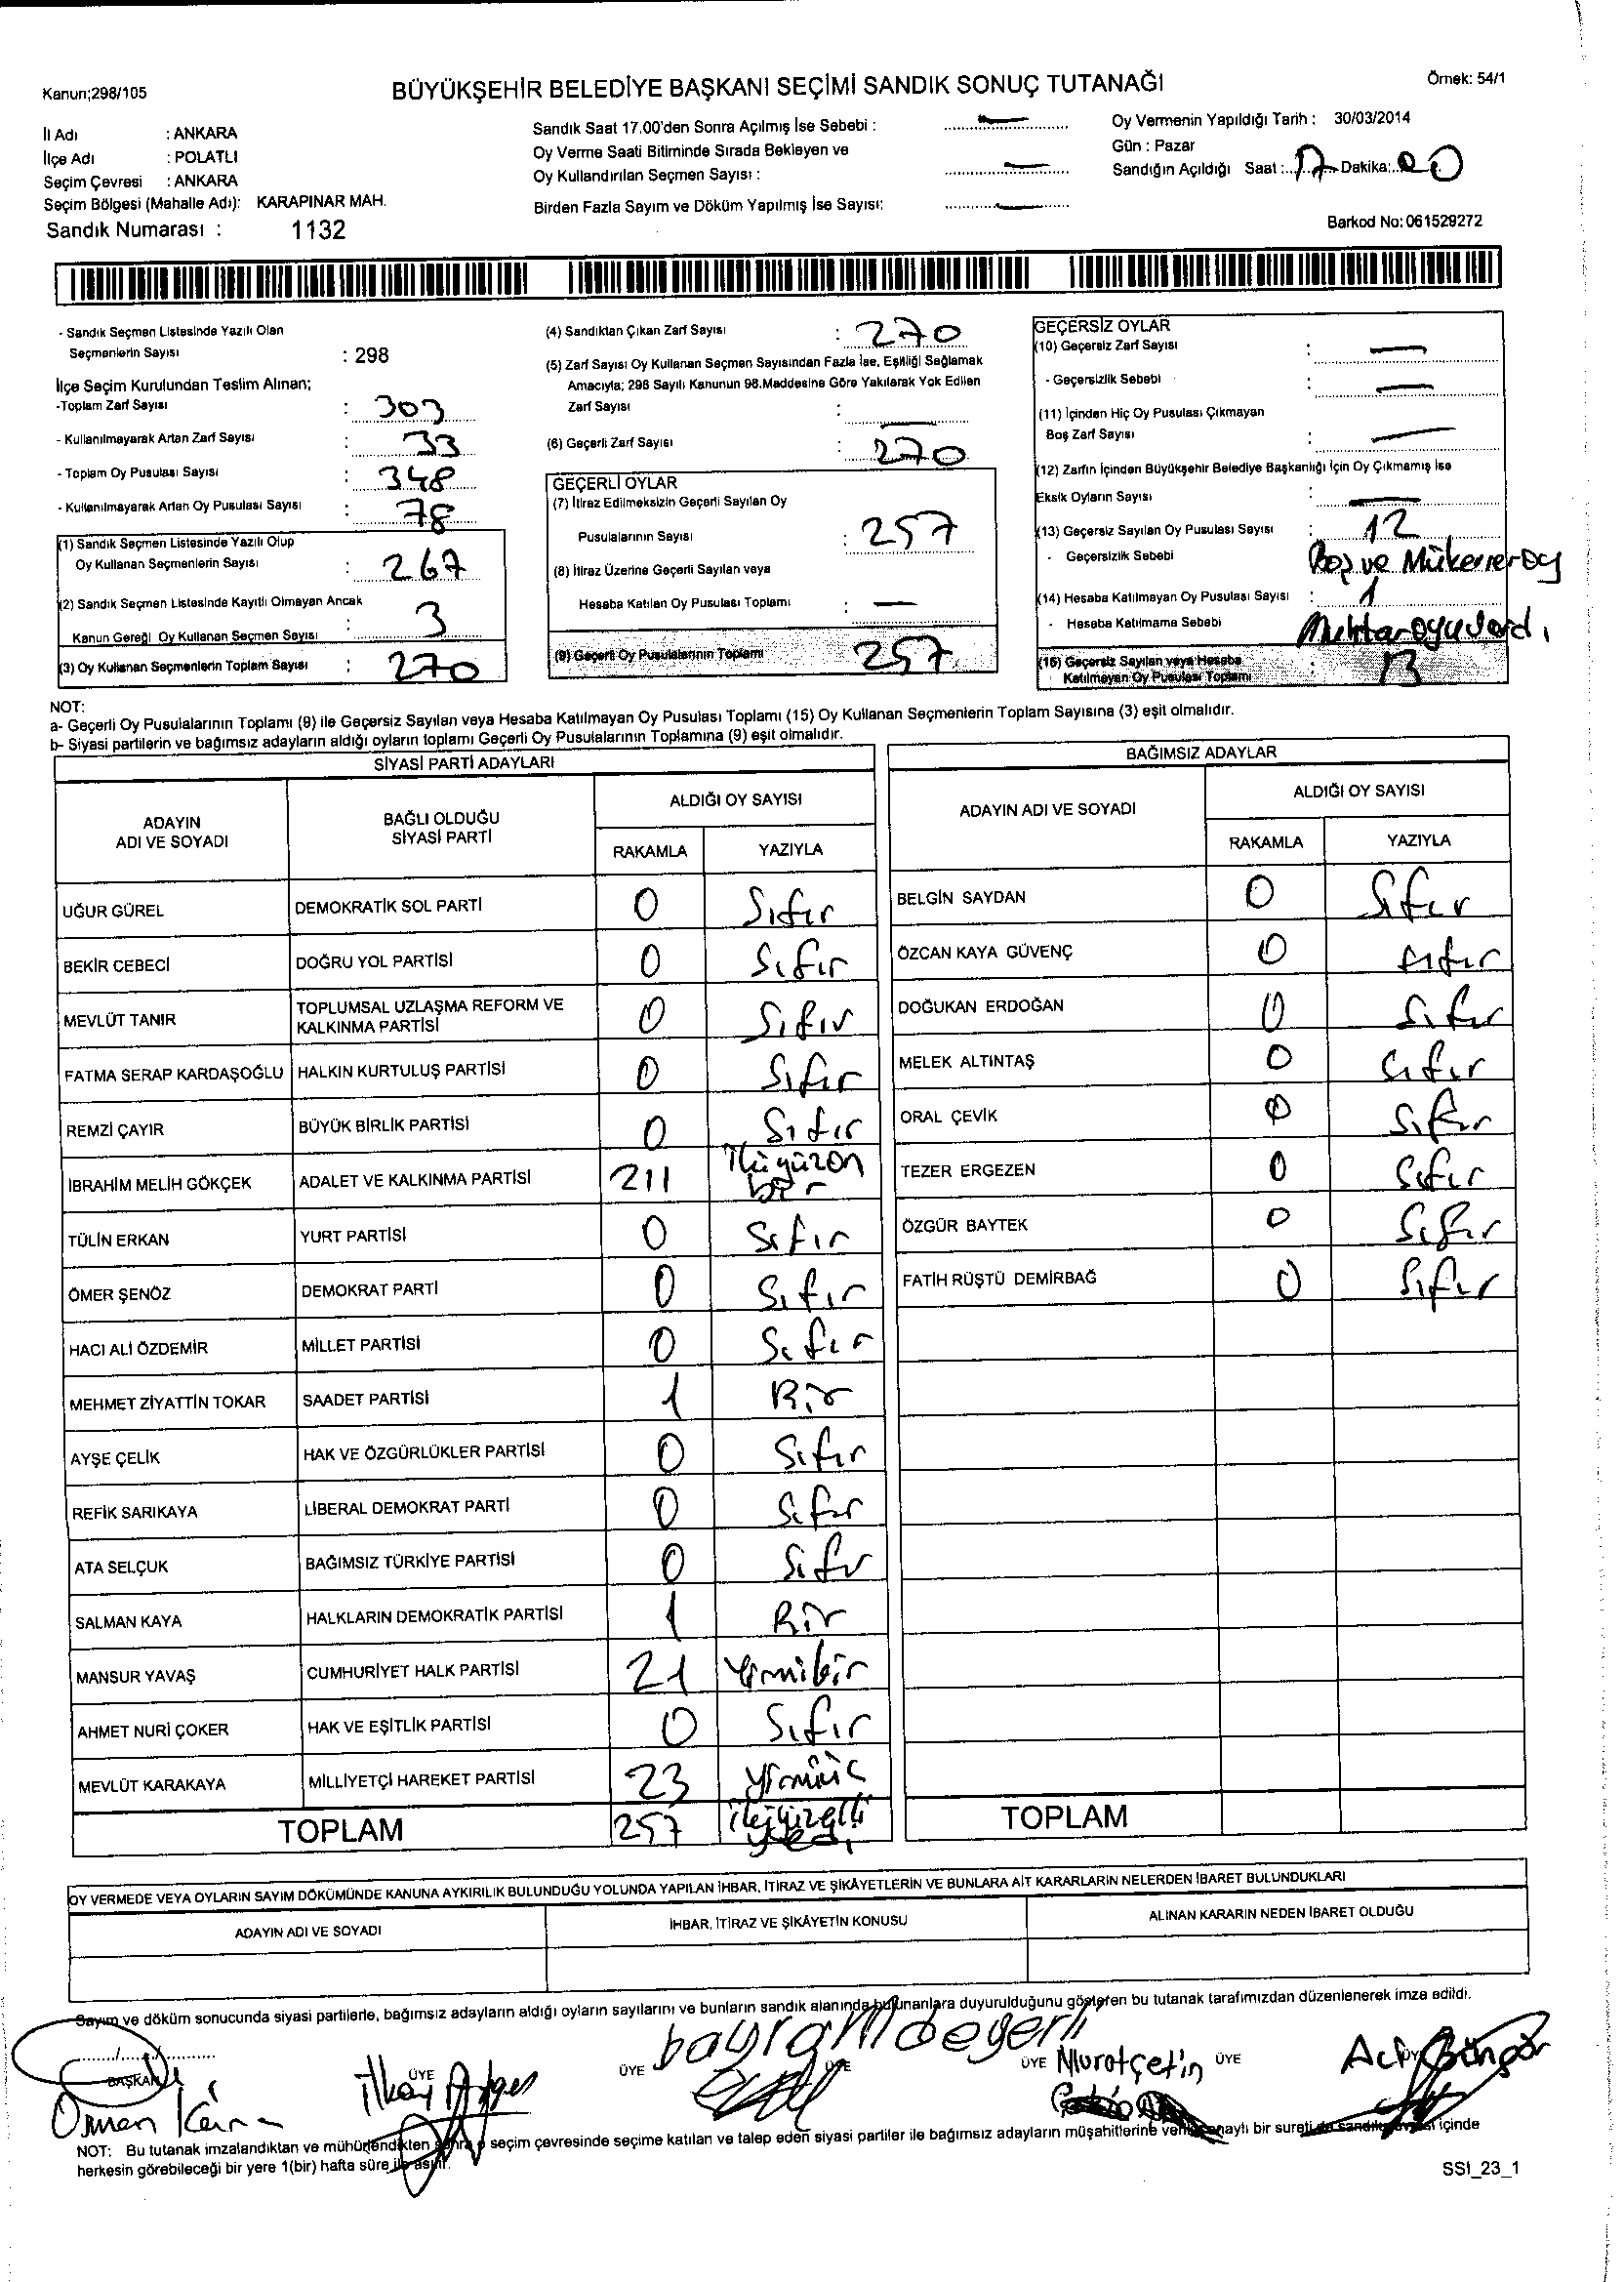 Kanun;298/105
BÜYÜKŞEHİR BELEDİYE BAŞKANI SEÇİMİ SANDIK SONUÇ TUTANAĞI
Örnek: 54/1
İl Adı : ANKARA
İlçe Adı : POLATLI
Seçim Çevresi : ANKARA
Seçim Bölgesi (Mahalle Adı): KARAPINAR MAH.
Sandık Numarası : 1132
Sandık Saat 17.00'den Sonra Açılmış İse Sebebi : —
Oy Verme Saati Bitiminde Sırada Bekleyen ve
Oy Kullandırılan Seçmen Sayısı : —
Birden Fazla Sayım ve Döküm Yapılmış İse Sayısı: —
Oy Vermenin Yapıldığı Tarih : 30/03/2014
Gün : Pazar
Sandığın Açıldığı Saat : 17 Dakika: 00
Barkod No: 061529272
- Sandık Seçmen Listesinde Yazılı Olan
Seçmenlerin Sayısı : 298
İlçe Seçim Kurulundan Teslim Alınan;
-Toplam Zarf Sayısı : 303
- Kullanılmayarak Artan Zarf Sayısı : 33
- Toplam Oy Pusulası Sayısı : 348
- Kullanılmayarak Artan Oy Pusulası Sayısı : 78
(1) Sandık Seçmen Listesinde Yazılı Olup
Oy Kullanan Seçmenlerin Sayısı : 267
(2) Sandık Seçmen Listesinde Kayıtlı Olmayan Ancak
Kanun Gereği Oy Kullanan Seçmen Sayısı : 3
(3) Oy Kullanan Seçmenlerin Toplam Sayısı : 270
(4) Sandıktan Çıkan Zarf Sayısı : 270
(5) Zarf Sayısı Oy Kullanan Seçmen Sayısından Fazla İse, Eşitliği Sağlamak
Amacıyla; 298 Sayılı Kanunun 98.Maddesine Göre Yakılarak Yok Edilen
Zarf Sayısı : —
(6) Geçerli Zarf Sayısı : 270
GEÇERLİ OYLAR
(7) İtiraz Edilmeksizin Geçerli Sayılan Oy
Pusulalarının Sayısı : 257
(8) İtiraz Üzerine Geçerli Sayılan veya
Hesaba Katılan Oy Pusulası Toplamı : —
(9) Geçerli Oy Pusulalarının Toplamı 257
GEÇERSİZ OYLAR
(10) Geçersiz Zarf Sayısı : —
- Geçersizlik Sebebi : —
(11) İçinden Hiç Oy Pusulası Çıkmayan
Boş Zarf Sayısı : —
(12) Zarfın İçinden Büyükşehir Belediye Başkanlığı İçin Oy Çıkmamış İse
Eksik Oyların Sayısı : —
(13) Geçersiz Sayılan Oy Pusulası Sayısı : 12
- Geçersizlik Sebebi Boş ve Mükerrer oy
(14) Hesaba Katılmayan Oy Pusulası Sayısı : 1
- Hesaba Katılmama Sebebi Muhtar oyu vardı
(15) Geçersiz Sayılan veya Hesaba
Katılmayan Oy Pusulası Toplamı : 13
NOT:
a- Geçerli Oy Pusulalarının Toplamı (9) ile Geçersiz Sayılan veya Hesaba Katılmayan Oy Pusulası Toplamı (15) Oy Kullanan Seçmenlerin Toplam Sayısına (3) eşit olmalıdır.
b- Siyasi partilerin ve bağımsız adayların aldığı oyların toplamı Geçerli Oy Pusulalarının Toplamına (9) eşit olmalıdır.
SİYASİ PARTİ ADAYLARI
ADAYIN ADI VE SOYADI BAĞLI OLDUĞU SİYASİ PARTİ ALDIĞI OY SAYISI
RAKAMLA YAZIYLA
UĞUR GÜREL DEMOKRATİK SOL PARTİ 0 Sıfır
BEKİR CEBECİ DOĞRU YOL PARTİSİ 0 Sıfır
MEVLÜT TANIR TOPLUMSAL UZLAŞMA REFORM VE KALKINMA PARTİSİ 0 Sıfır
FATMA SERAP KARDAŞOĞLU HALKIN KURTULUŞ PARTİSİ 0 Sıfır
REMZİ ÇAYIR BÜYÜK BİRLİK PARTİSİ 0 Sıfır
İBRAHİM MELİH GÖKÇEK ADALET VE KALKINMA PARTİSİ 211 İkiyüzon bir
TÜLİN ERKAN YURT PARTİSİ 0 Sıfır
ÖMER ŞENÖZ DEMOKRAT PARTİ 0 Sıfır
HACI ALİ ÖZDEMİR MİLLET PARTİSİ 0 Sıfır
MEHMET ZİYATTİN TOKAR SAADET PARTİSİ 1 Bir
AYŞE ÇELİK HAK VE ÖZGÜRLÜKLER PARTİSİ 0 Sıfır
REFİK SARIKAYA LİBERAL DEMOKRAT PARTİ 0 Sıfır
ATA SELÇUK BAĞIMSIZ TÜRKİYE PARTİSİ 0 Sıfır
SALMAN KAYA HALKLARIN DEMOKRATİK PARTİSİ 1 Bir
MANSUR YAVAŞ CUMHURİYET HALK PARTİSİ 21 Yirmibir
AHMET NURİ ÇOKER HAK VE EŞİTLİK PARTİSİ 0 Sıfır
MEVLÜT KARAKAYA MİLLİYETÇİ HAREKET PARTİSİ 23 yirmiüç
TOPLAM 257 ikiyüzelli yedi
BAĞIMSIZ ADAYLAR
ADAYIN ADI VE SOYADI ALDIĞI OY SAYISI
RAKAMLA YAZIYLA
BELGİN SAYDAN 0 Sıfır
ÖZCAN KAYA GÜVENÇ 0 sıfır
DOĞUKAN ERDOĞAN 0 Sıfır
MELEK ALTINTAŞ 0 Sıfır
ORAL ÇEVİK 0 Sıfır
TEZER ERGEZEN 0 Sıfır
ÖZGÜR BAYTEK 0 Sıfır
FATİH RÜŞTÜ DEMİRBAĞ 0 Sıfır
TOPLAM
OY VERMEDE VEYA OYLARIN SAYIM DÖKÜMÜNDE KANUNA AYKIRILIK BULUNDUĞU YOLUNDA YAPILAN İHBAR, İTİRAZ VE ŞİKÂYETLERİN VE BUNLARA AİT KARARLARIN NELERDEN İBARET BULUNDUKLARI
ADAYIN ADI VE SOYADI İHBAR, İTİRAZ VE ŞİKÂYETİN KONUSU ALINAN KARARIN NEDEN İBARET OLDUĞU
Sayım ve döküm sonucunda siyasi partilerle, bağımsız adayların aldığı oyların sayılarını ve bunların sandık alanında bulunanlara duyurulduğunu gösteren bu tutanak tarafımızdan düzenlenerek imza edildi.
BAŞKAN ÜYE ÜYE ÜYE ÜYE ÜYE
Osman bayram değerli Murat Çetin
NOT: Bu tutanak imzalandıktan ve mühürlendikten sonra o seçim çevresinde seçime katılan ve talep eden siyasi partiler ile bağımsız adayların müşahitlerine verilir, onaylı bir sureti de sandık çevresi içinde
herkesin görebileceği bir yere 1(bir) hafta süre ile asılır.
SSI_23_1